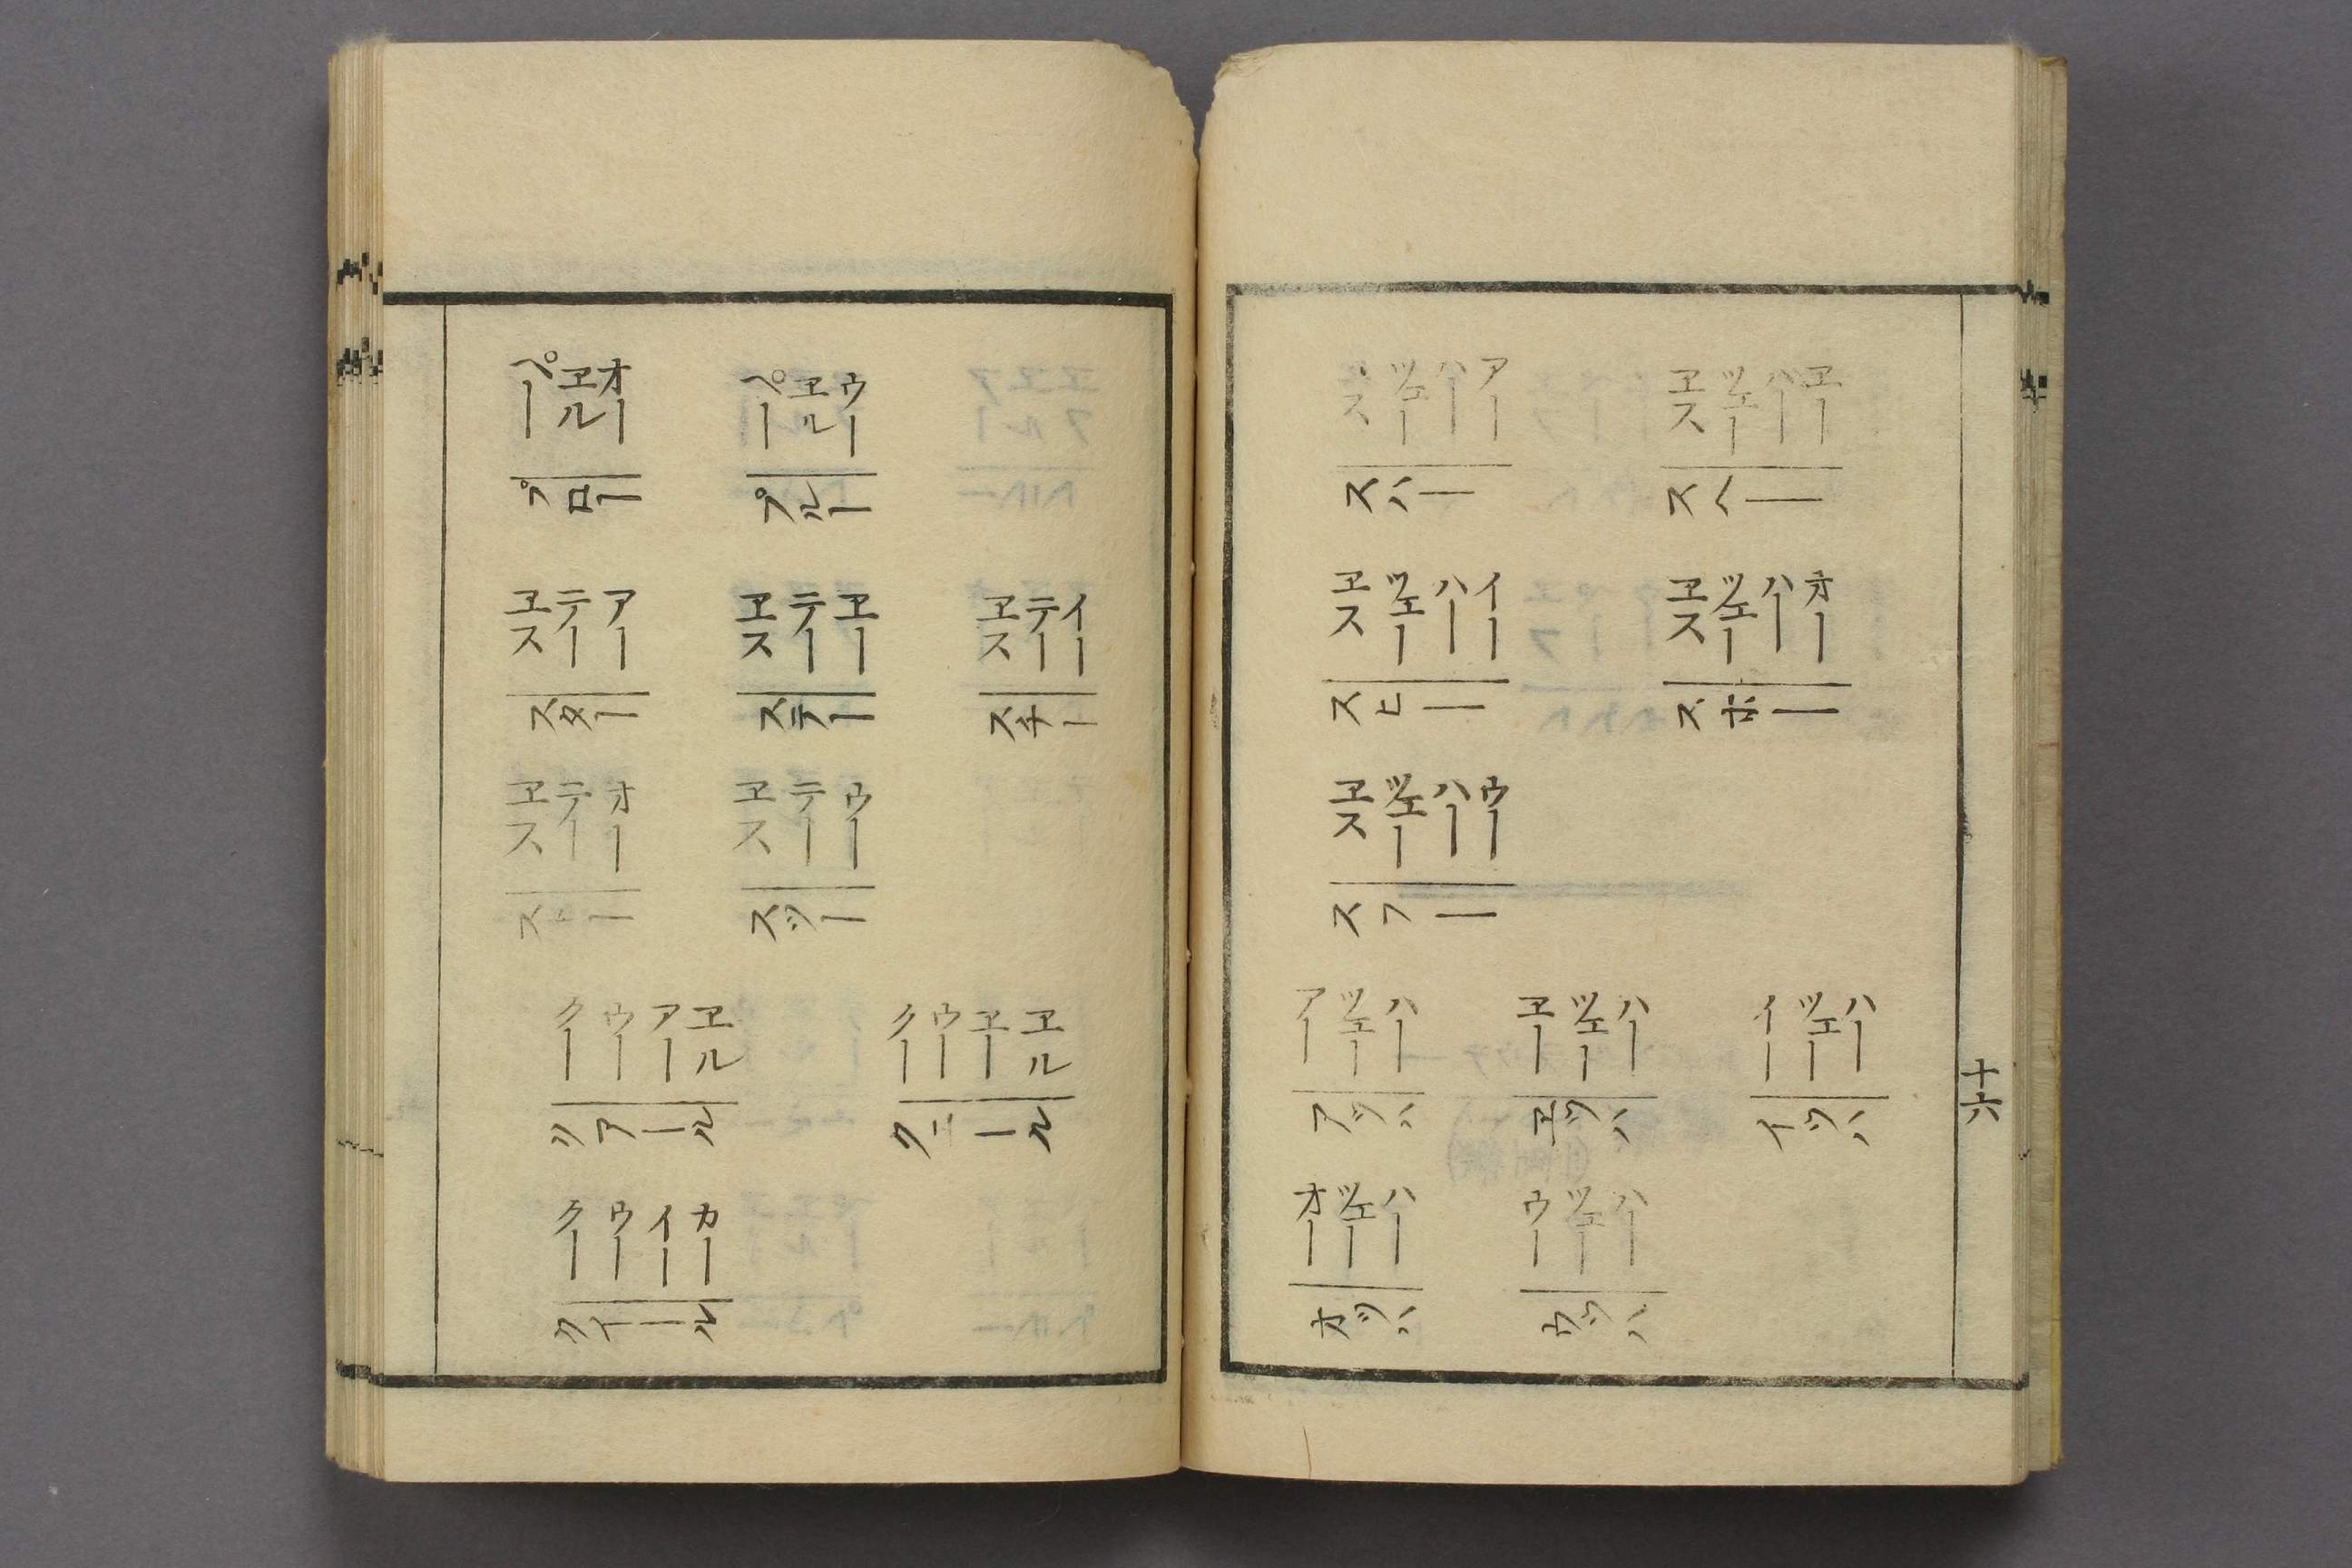 ペー ヱル オー　ペー ヱル ウー
プロー　プルー
ヱス テー アー　ヱス テー ヱー　ヱス テー イー
スター　ステー　スチー
ヱス テー オー　ヱス テー ウー
ストー　スツー
クー ウー アー ヱル　クー ウー ヱー ヱル
リアール　クニール
クー ウー イー カー
クイール
ヱス ツェー ハー アー　ヱス ツェー ハー ヱー
スハー　スヘー
ヱス ツェー ハー イー　ヱス ツェー ハー オー
スヒー　スホー
ヱス ツェー ハー ウー
スフー
アー ツェー ハー　ヱー ツェー ハー　イー ツェー ハー
アツハ　ヱツハ　イツハ
オー ツェー ハー　ウー ツェー ハー
オツハ　ウツハ
十六